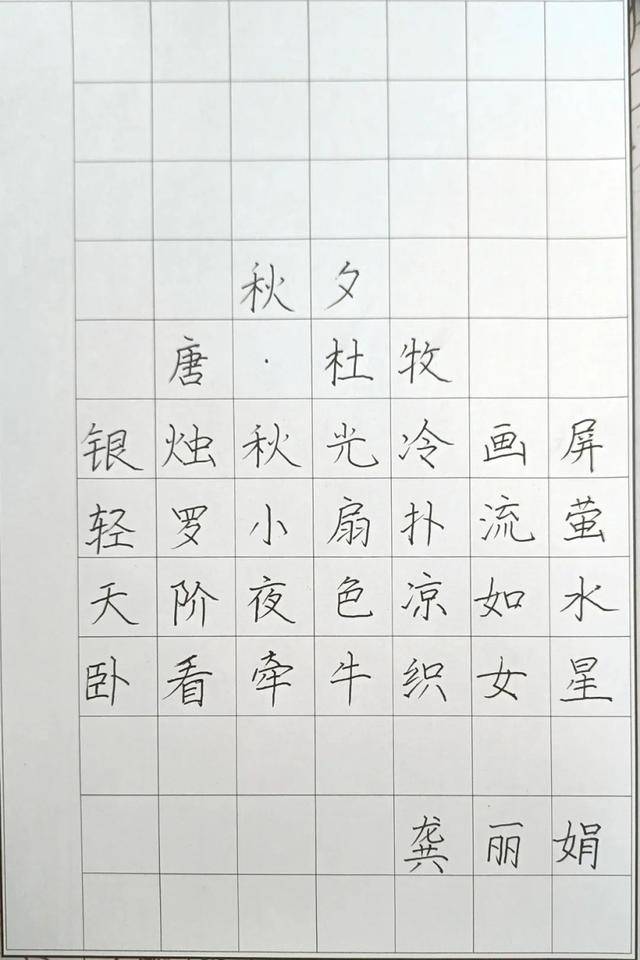 秋夕
唐·杜牧
银烛秋光冷画屏
轻罗小扇扑流萤
天阶夜色凉如水
卧看牵牛织女星
龚丽娟